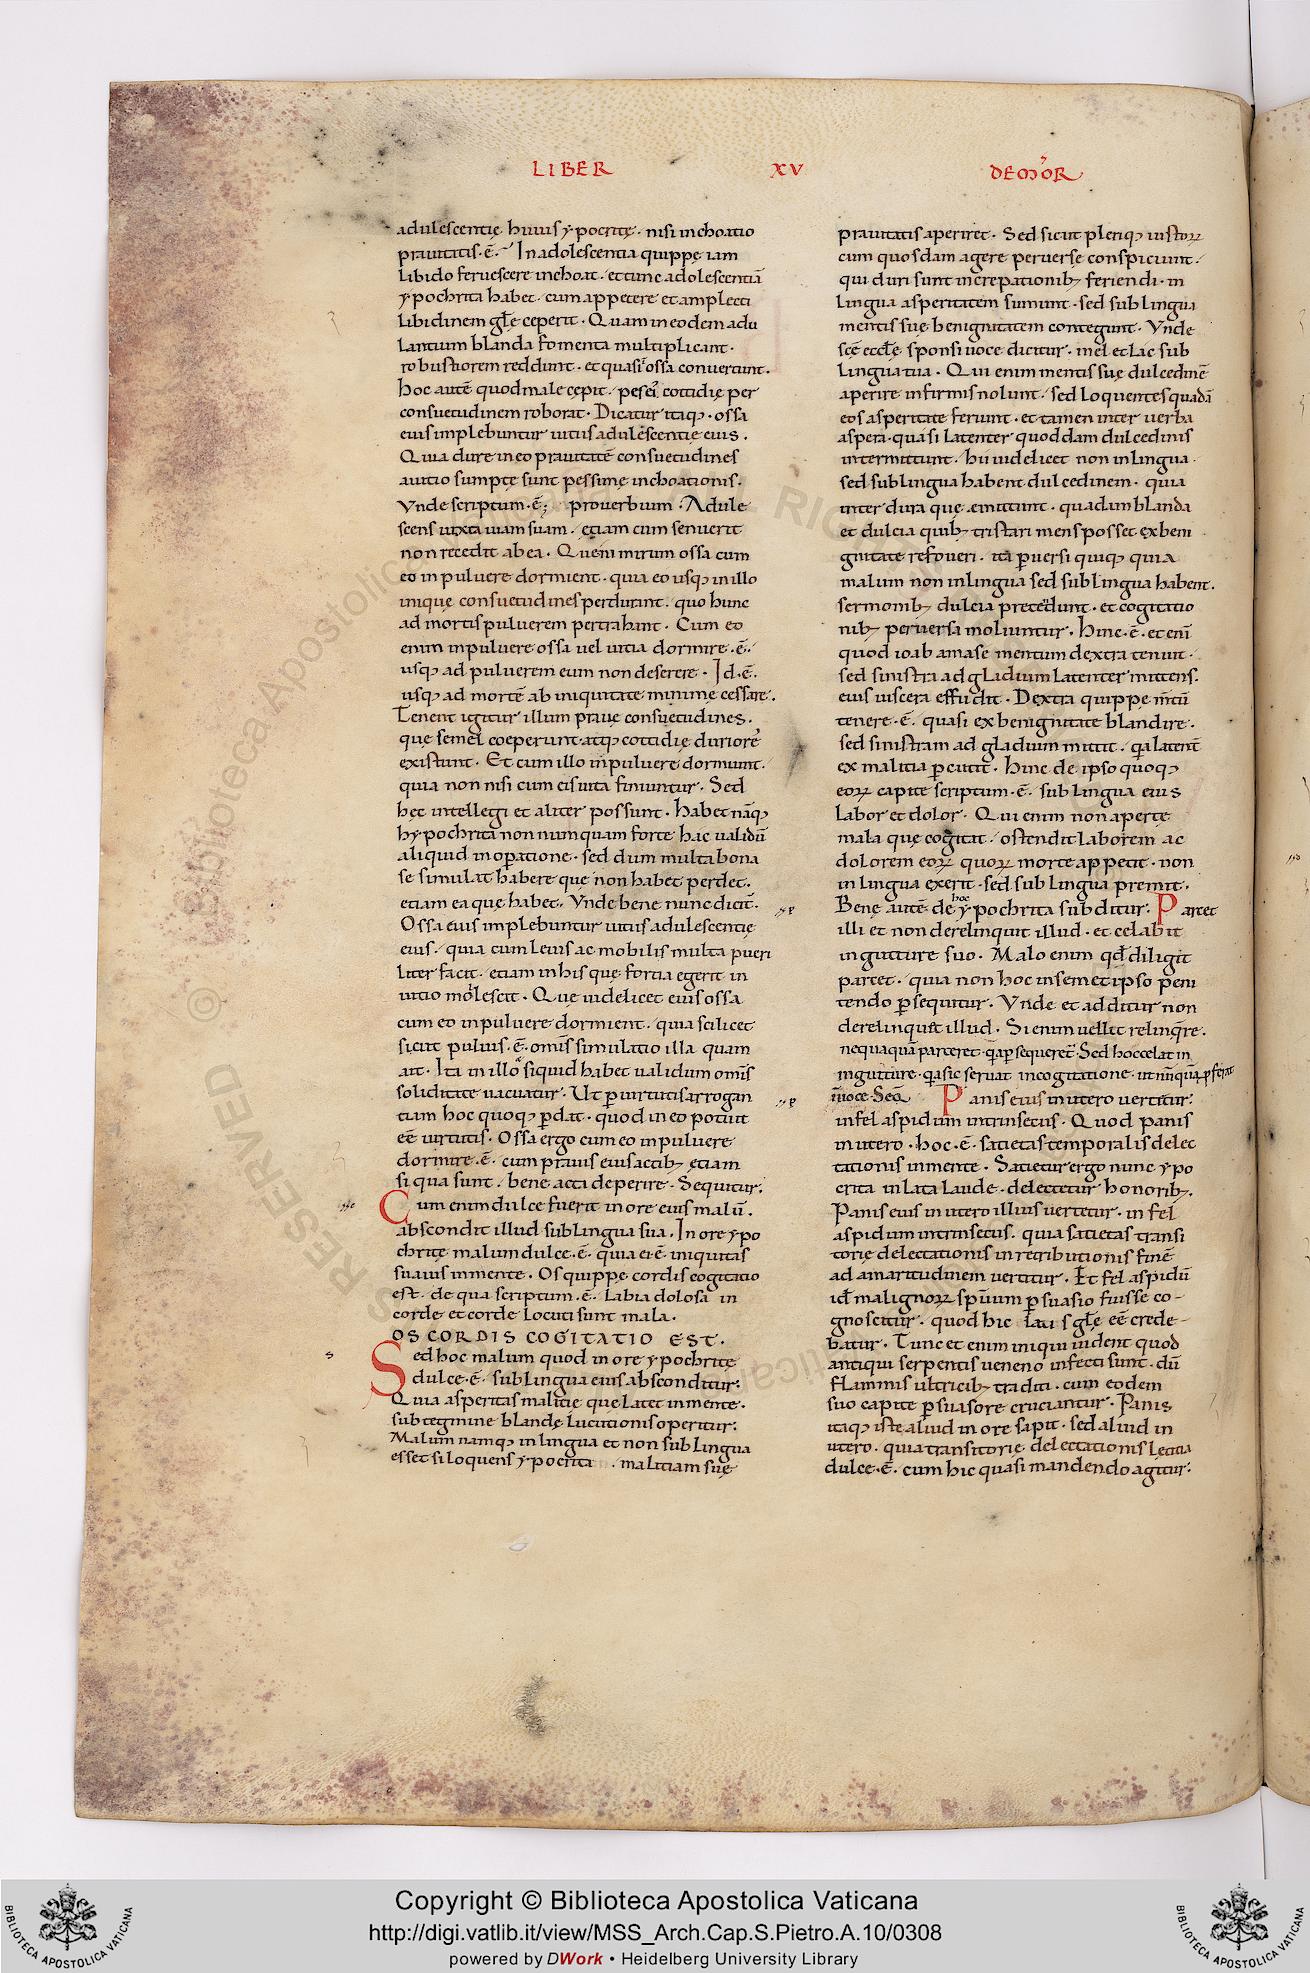 LIBER XV DE MOR
adulescentię huius ypocritę · nisi inchoatio
prauitatis · ē · In adolescentia quippę iam
libido feruescere inchoat · et tunc adolescentiā
ypochrita habet · cum appetere et amplecti
libidinem głę ceperit · Quam in eodem adu
lantium blanda fomenta multiplicant ·
robustiorem reddunt · et quasi ossa conuertunt ·
hoc autē quod male cepit · cottidię per
consuetudinem roborat · Dicatur itaq; · ossa
eius implebuntur uitiis adulescentię eius ·
Quia dure in eo prauitatē consuetudines
a uitio sumptę sunt pessimę inchoationis ·
Vnde scriptum · ē ; prouerbium · Adule
scens iuxta uiam suam · etiam cum senuerit
non recedit ab ea · Quem mirum ossa cum
eo in puluere dormient · quia eo usq; in illo
iniquę consuetudines perdurant · quo hunc
ad mortis puluerem pertrahant · Cum eo
enim in puluere ossa uel uitia dormire · ē ·
usq; ad puluerem eum non deserere · Id · ē ·
usq; ad mortē ab iniquitate minimę cessare ·
Tenent igitur illum prauę consuetudines ·
quę semel coeperunt · atq; cottidię duriore
existunt · Et cum illo in puluere dormiunt ·
quia non nisi cum eis uita finiuntur · Sed
hęc intellegi et aliter possunt · habet nāq;
hypochrita non numquam forte hac ualidū
aliquid in opatione · sed dum multa bona
se simulat habere que non habet perdet ·
etiam ea quę habet · Vnde bene nunc dicit ·
Ossa eius implebuntur uitiis adulescentię
eius · quia cum leuis ac mobilis multa pueri
liter facit · etiam in his quę fortia egerit in
uitio molescit · Quę uidelicet eius ossa
cum eo in puluere dormient · quia scilicet
sicut puluis · ē · omis simulatio illa quam
ait · Ita in illo siquid habet ualidum omīs
soliditate uacuatur · Ut p uirtutis arrogan
tiam hoc quoq; pdat · quod in eo potuit
eē uirtutis · Ossa ergo cum eo in puluere
dormire · ē · cum prauis eius actib; etiam
si qua sunt · bene acta deperire · Sequitur ·
Cum enim dulce fuerit in ore eius malū ·
abscondit illud sub lingua sua · In ore ypo
chritę malum dulce · ē · quia ei · ē · iniquitas
suauis in mente · Os quippe cordis cogitatio
est · de qua scriptum · ē · Labia dolosa in
corde et corde locuti sunt mala ·
OS CORDIS COGITATIO EST ·
Sed hoc malum quod in ore ypochrite
dulce · ē · sub lingua eius absconditur :
Quia asperitas malitię quę latet in mente ·
sub tegmine blandę lucutionis operitur :
Malum namq; in lingua et non sub lingua
esset si loquens ypocrita malitiam suę
prauitatis aperiret · Sed sicut pleriq; iustoꝝ
cum quosdam agere peruerse conspiciunt ·
qui duri sunt increpationib; feriendi · in
lingua asperitatem sumunt · sed sub lingua
mentis suę benignitatem contegunt · Vnde
scę ecclę sponsi uoce dicitur · mel et lac sub
lingua tua · Qui enim mentis suę dulcedinē
aperire infirmis nolunt · sed loquentes quadā
eos asperitate feriunt · et tamen inter uerba
aspera · quasi latenter quoddam dulcedinis
intermittunt · hii uidelicet non in lingua ·
sed sub lingua habent dulcedinem · quia
inter dura que emittunt · quędam blanda
et dulcia quib; tristari mens posset ex beni
gnitate refoueri · ita puersi quiq; quia
malum non in lingua sed sub lingua habent ·
sermonib; dulcia pretedunt · et cogitatio
nib; peruersa moliuntur · Hinc · ē · et enī
quod ioab amase mentum dextra tenuit ·
sed sinistra ad gladium latenter mittens ·
eius uiscera effudit · Dextra quippe mtū
tenere · ē · quasi ex benignitate blandire ·
sed sinistram ad gladium mittit · q̄ latent
ex malitia pcutit · Hinc de ipso quoq;
eoꝝ capite scriptum · ē · sub lingua eius
labor et dolor · Qui enim non aperte
mala quę cogitat · ostendit laborem ac
dolorem eoꝝ quoꝝ morte appetit · non
in lingua exerit · sed sub lingua premit ·
Benę autē de hoc ypochrita subditur : Parcet
illi et non derelinquit illud · et celabit
in gutture suo · Malo enim qđ diligit
parcet · quia non hoc in semet ipso peni
tendo psequitur · Vnde et additur non
derelinquet illud · Si enim uellit relinq̄re ·
nequaquā parceret · q̄ psequeret · Sed hoc celat in
in gutture · q̄ sic seruat in cogitatione · ut nūquā pferat
in uoce · Seq̄ Panis eius in utero uertitur :
in fel aspidum intrinsecus · Quod panis
in utero · hoc · ē · satietas temporalis delec
tationis in mente · Satietur ergo nunc ypo
crita in lata laude · delectetur honorib; ·
Panis eius in utero illius uertetur · in fel
aspidum intrinsecus · quia satietas transi
torię delectationis in retributionis finē
ad amaritudinem uertitur · Et fel aspidū
id malignoꝝ spūum psuasio fuisse co-
gnoscitur · quod hic laus głę eē crede-
batur · Tunc et enim iniqui uident quod
antiqui serpentis ueneno infecti sunt · dū
flammis ultricib; traditi · cum eodem
suo capite psuasore cruciantur · Panis
itaq; iste aliud in ore sapit · sed aliud in
utero · quia transitorię delectationis lętitia
dulce · ē · cum hic quasi mandendo agitur :
Copyright © Biblioteca Apostolica Vaticana
http://digi.vatlib.it/view/MSS_Arch.Cap.S.Pietro.A.10/0308
powered by DWork • Heidelberg University Library